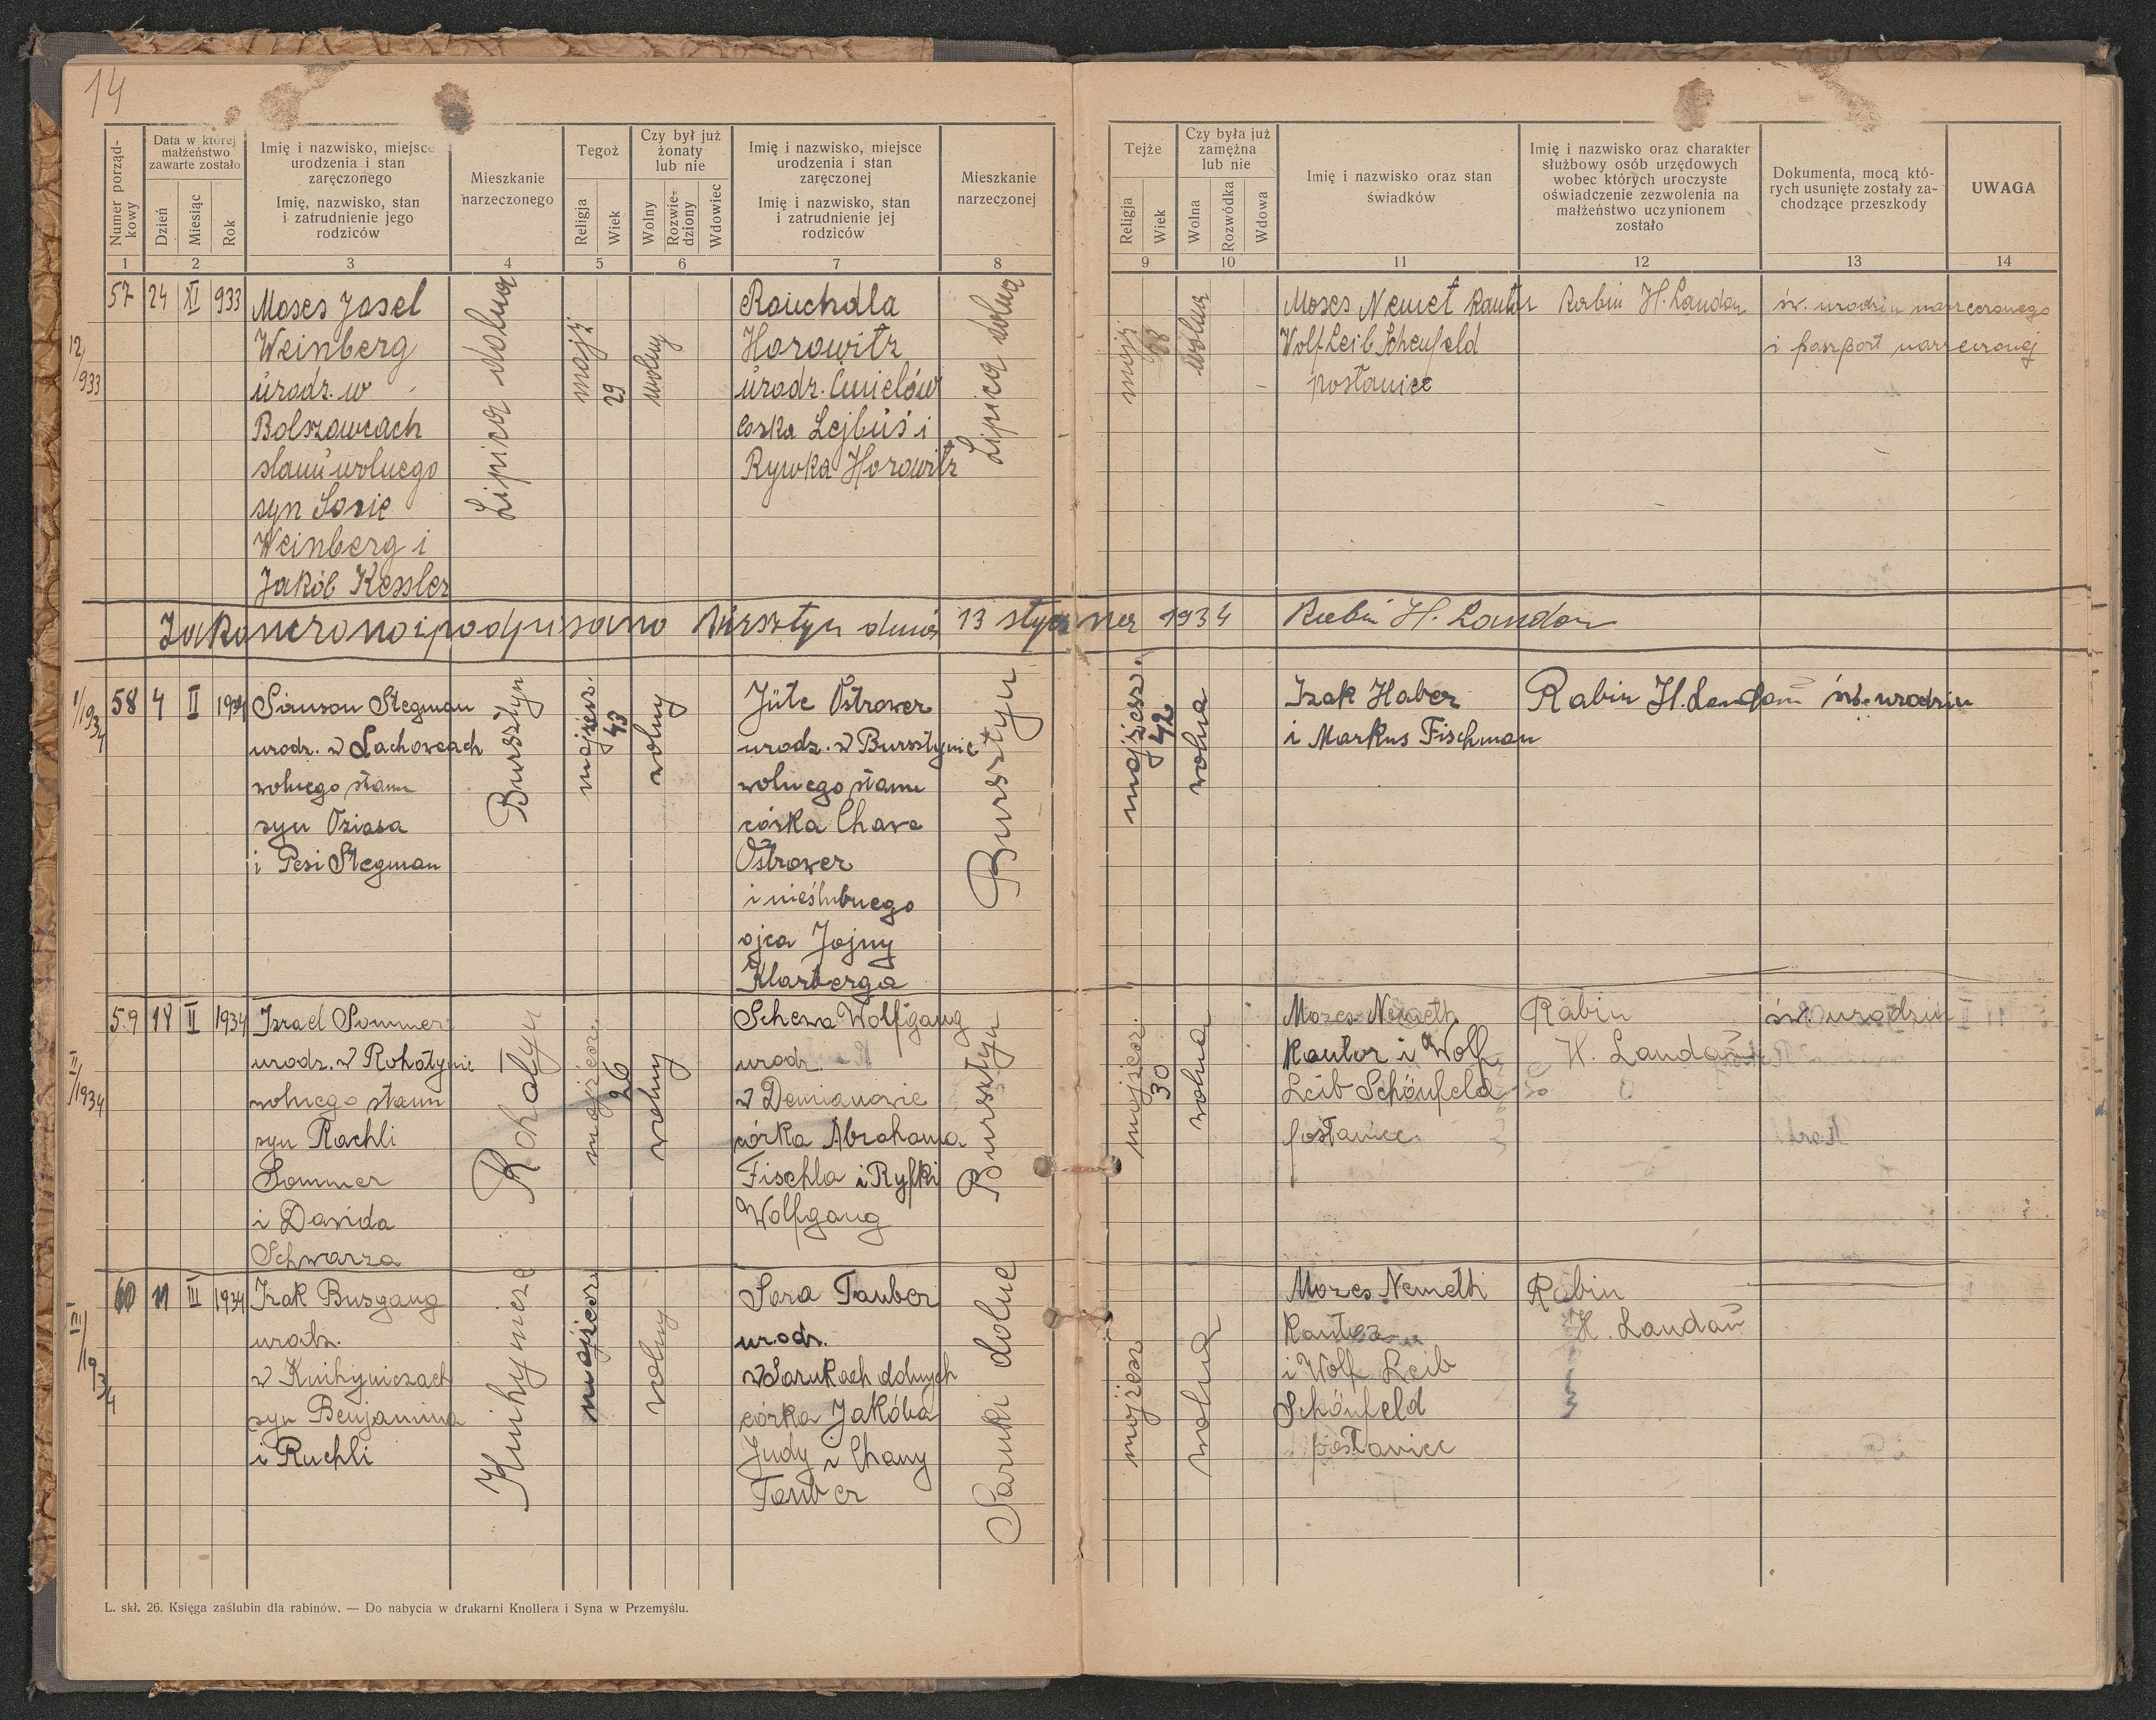 14
Numer porząd-
kowy
Data w której
małżeństwo
zawarte zostało
Dzień
Miesiąc
Rok
Imię i nazwisko, miejsce
urodzenia i stan
zaręczonego
Imię, nazwisko, stan
i zatrudnienie jego
rodziców
Mieszkanie
narzeczonego
Tegoż
Religja
Wiek
Czy był już
żonaty
lub nie
Wolny
Rozwie-
dziony
Wdowiec
Imię i nazwisko, miejsce
urodzenia i stan
zaręczonej
Imię i nazwisko, stan
i zatrudnienie jej
rodziców
Mieszkanie
narzeczonej
Tejże
Religja
Wiek
Czy była już
zamężna
lub nie
Wolna
Rozwódka
Wdowa
Imię i nazwisko oraz stan
świadków
Imię i nazwisko oraz charakter
służbowy osób urzędowych
wobec których uroczyste
oświadczenie zezwolenia na
małżeństwo uczynionem
zostało
Dokumenta, mocą któ-
rych usunięte zostały za-
chodzące przeszkody
UWAGA
1 2 3 4 5 6 7 8 9 10 11 12 13 14
12/933
57 24 XI 933
Moses Josel
Weinberg
urodz. w
Bolszowcach
stanu wolnego
syn Sosie
Weinberg i
Jakób Kessler
Lipica dolna
mojż
29
wolny
Rouchdla
Horowitz
urodz. Ćmielów
Corka Lejbuś i
Rywka Horowitz
Lipica dolna
mojż
wolna
Moses Nemet Kantor
Wolf Leib Schenfeld
posłaniec
Rabin H. Landau
św. urodzin narzeczonego
i paszport narzeczonej
Zakończono i podpisano Bursztyn dnia 13 stycznia 1934 Rabin H. Landau
1/1934
58 4 II 1934
Simson Stegman
urodz. w Lachowcach
wolnego stanu
syn Oziasa
i Pesi Stegman
Bursztyn
mojżesz.
43
wolny
Jüte Ostrower
urodz. w Bursztynie
wolnego stanu
córka Chawe
Ostrower
i nieślubnego
ojca Jojny
Klarberga
Bursztyn
mojżesz.
42
wolna
Izak Haber
i Markus Fischman
Rabin H. Landau
św. urodzin
II/1934
59 18 II 1934
Izrael Sommer
urodz. w Rohatynie
wolnego stanu
syn Rachli
Sommer
i Dawida
Schwarza
Rohatyn
mojżesz.
26
wolny
Schewa Wolfgang
urodz.
w Demianowie
córka Abrahama
Fischla i Ryfki
Wolfgang
Bursztyn
mojżesz.
30
wolna
Mozes Nemeth
Kantor i Wolf
Leib Schönfeld
posłaniec
Rabin
H. Landau
św. urodzin
III/1934
60 11 III 1934
Izak Busgang
urodz.
w Knihyniczach
syn Benjamina
i Ruchli
Knihynicze
mojżesz.
wolny
Sara Tauber
urodz.
w Sarnkach dolnych
córka Jakóba
Judy i Chany
Tauber
Sarnki dolne
mojżesz
wolna
Mozes Nemeth
Kantor
i Wolf Leib
Schönfeld
posłaniec
Rabin
H. Landau
L. skł. 26. Księga zaślubin dla rabinów. — Do nabycia w drukarni Knollera i Syna w Przemyślu.